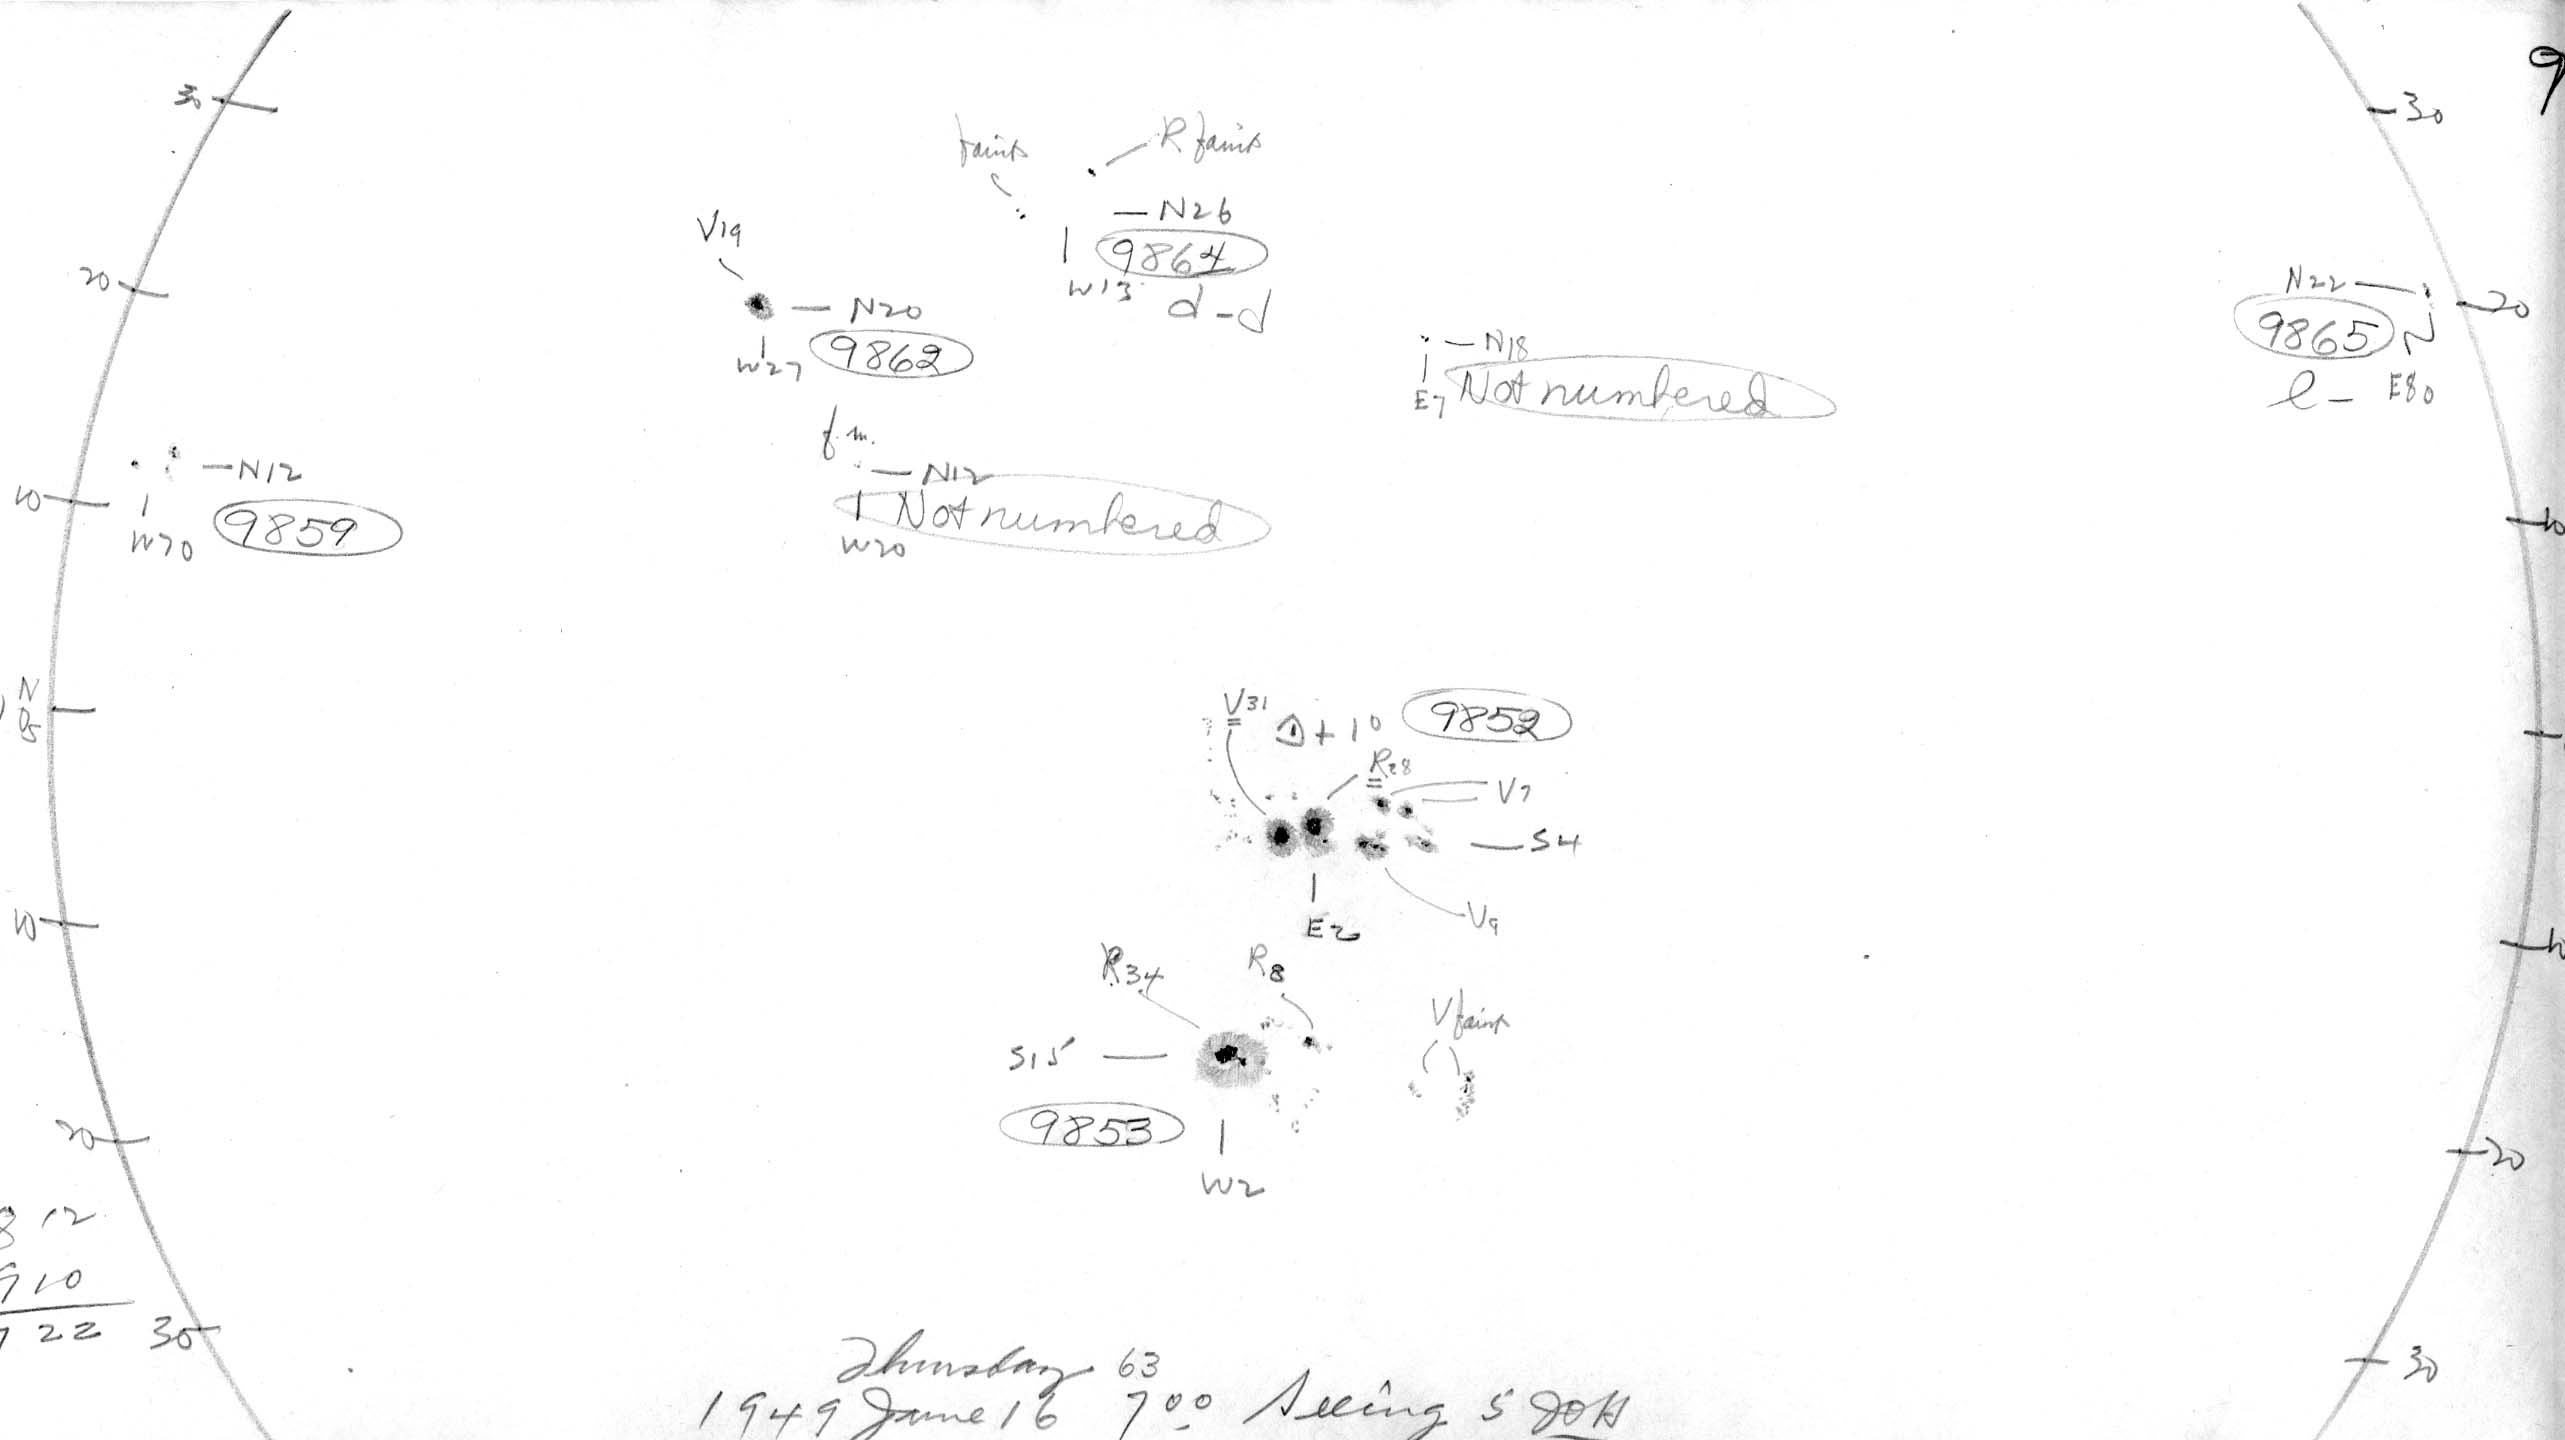 30
30
9
faint
R faint
N26
9864
W13
d-d
V19
N20
9862
W27
20
N22
20
9865
N
E80
l-
N18
E7
Not numbered
f.m.
N12
Not numbered
W20
N12
9859
W70
10
10
N
V31
9852
R28
V7
S4
V9
E2
10
10
R34
R8
V faint
S15
9853
W2
20
20
8 12
9 10
22
30
30
Thursday 63
1949 June 16 7 00 Seeing 5